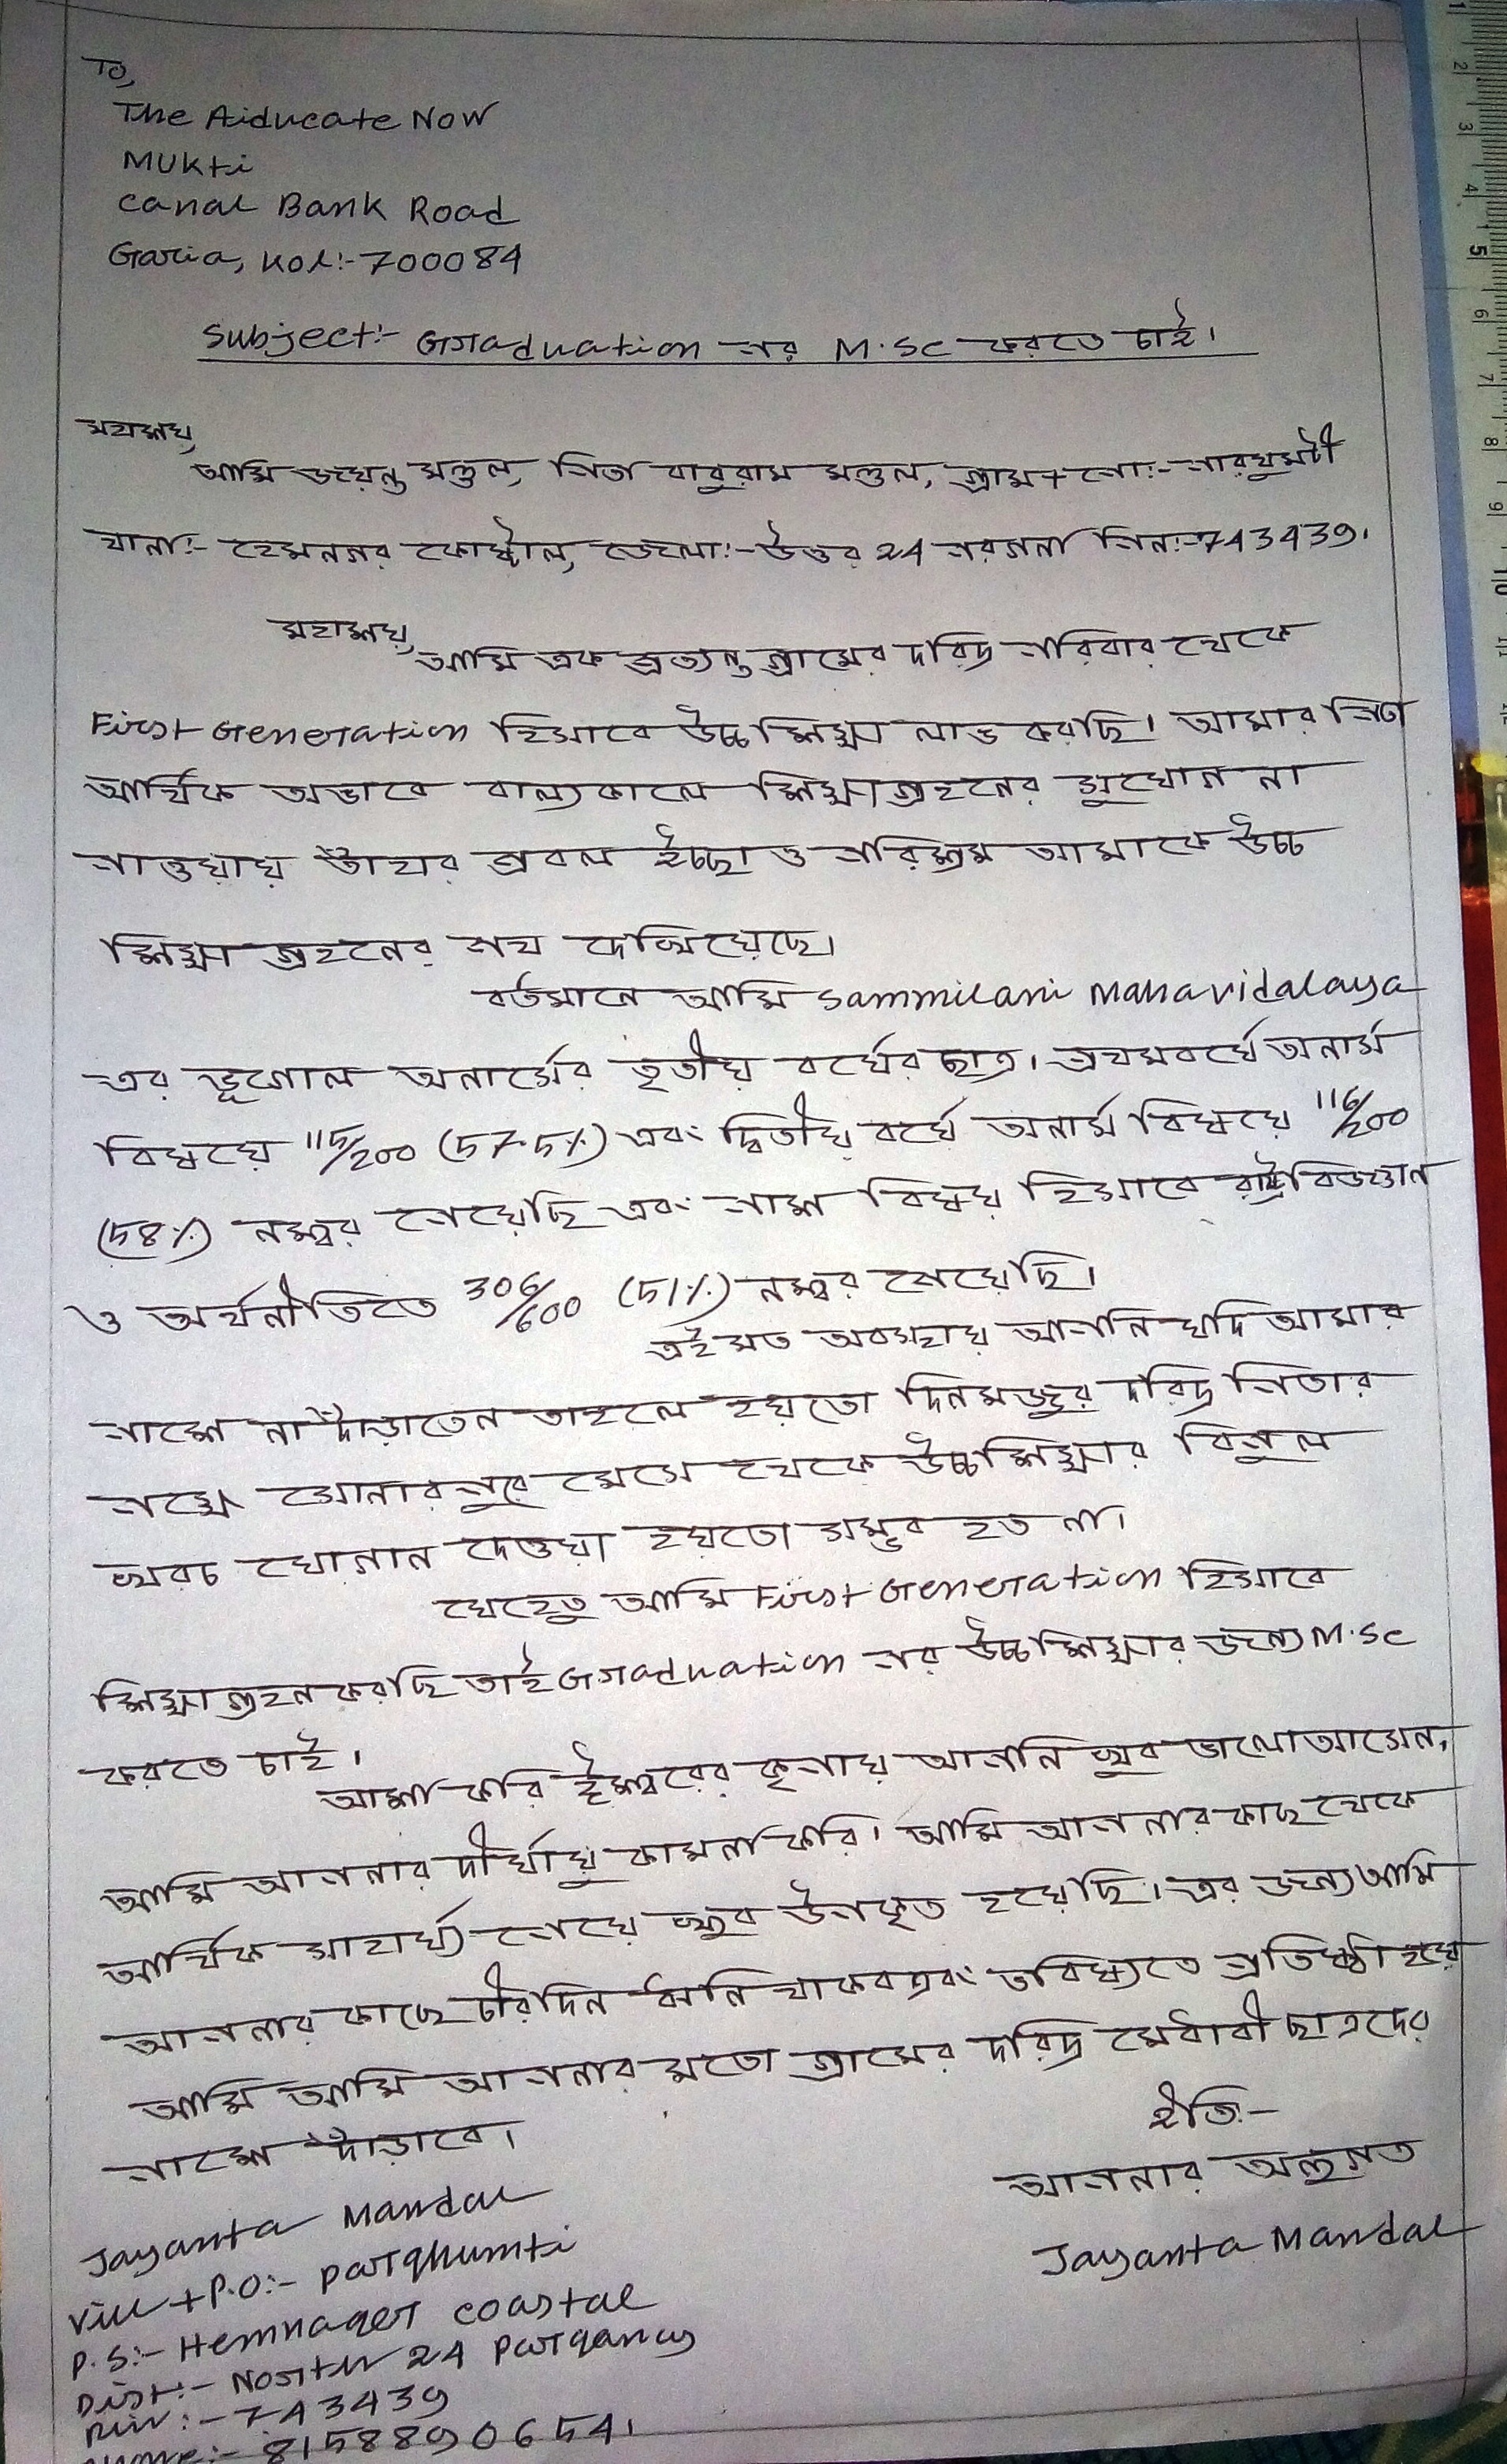 To,
The Aiducate Now
Mukti
canal Bank Road
Garia, Kol:-700084
Subject:- Graduation পর M.Sc করতে চাই।
মহাশয়,
আমি জয়েন্ত মন্ডল, পিতা বাবুরাম মন্ডল, গ্রাম+পো:-পারঘুমটী
থানা:- হেমনগর কোষ্টাল, জেলা:-উত্তর 24 পরগনা পিন:-743439।
মহাশয়,
আমি এক প্রত্যন্ত গ্রামের দরিদ্র পরিবার থেকে
First Generation হিসাবে উচ্চশিক্ষা লাভ করছি। আমার পিতা
আর্থিক অভাবে বাল্যকালে শিক্ষাগ্রহনের সুযোগ না
পাওয়ায় তাঁহার প্রবল ইচ্ছা ও পরিশ্রম আমাকে উচ্চ
শিক্ষা গ্রহনের পথ দেখিয়েছে।
বর্তমানে আমি Sammilani Mahavidalaya
এর ভূগোল অনার্সের তৃতীয় বর্ষের ছাত্র। প্রথমবর্ষে অনার্স
বিষয়ে 115/200 (57.5%) এবং দ্বিতীয় বর্ষে অনার্স বিষয়ে 116/200
(58%) নম্বর পেয়েছি এবং পাশ বিষয় হিসাবে রাষ্ট্রবিজ্ঞান
ও অর্থনীতিতে 306/600 (51%) নম্বর পেয়েছি।
এইমত অবস্হায় আপনি যদি আমার
পাশে না দাঁড়াতেন তাহলে হয়তো দিনমজুর দরিদ্র পিতার
পক্ষে সোনারপুরে মেসে থেকে উচ্চশিক্ষার বিপুল
খরচ যোগান দেওয়া হয়তো সম্ভব হত না।
যেহেতু আমি First Generation হিসাবে
শিক্ষাগ্রহন করছি তাই Graduation পর উচ্চশিক্ষার জন্য M.Sc
করতে চাই।
আশা করি ঈশ্বরের কৃপায় আপনি খুব ভালো আসেন,
আমি আপনার দীর্ঘায়ু কামনা করি। আমি আপনার কাছ থেকে
আর্থিক সাহার্য্য পেয়ে খুব উপকৃত হয়েছি। এর জন্য আমি
আপনার কাছে চীরদিন ঋনি থাকব এবং ভবিষ্যতে প্রতিষ্ঠা হয়ে
আমি আমি আপনার মতো গ্রামের দরিদ্র মেধাবী ছাত্রদের
পাশে দাঁড়াবো।
ইতি:-
আপনার অনুগত
Jayanta Mandal
Jayanta Mandal
Vill+P.O:- Parghumti
P.S:- Hemnager coastal
Dist:- Norther 24 Parganas
Pin:-743439
Phone:- 8158890654।